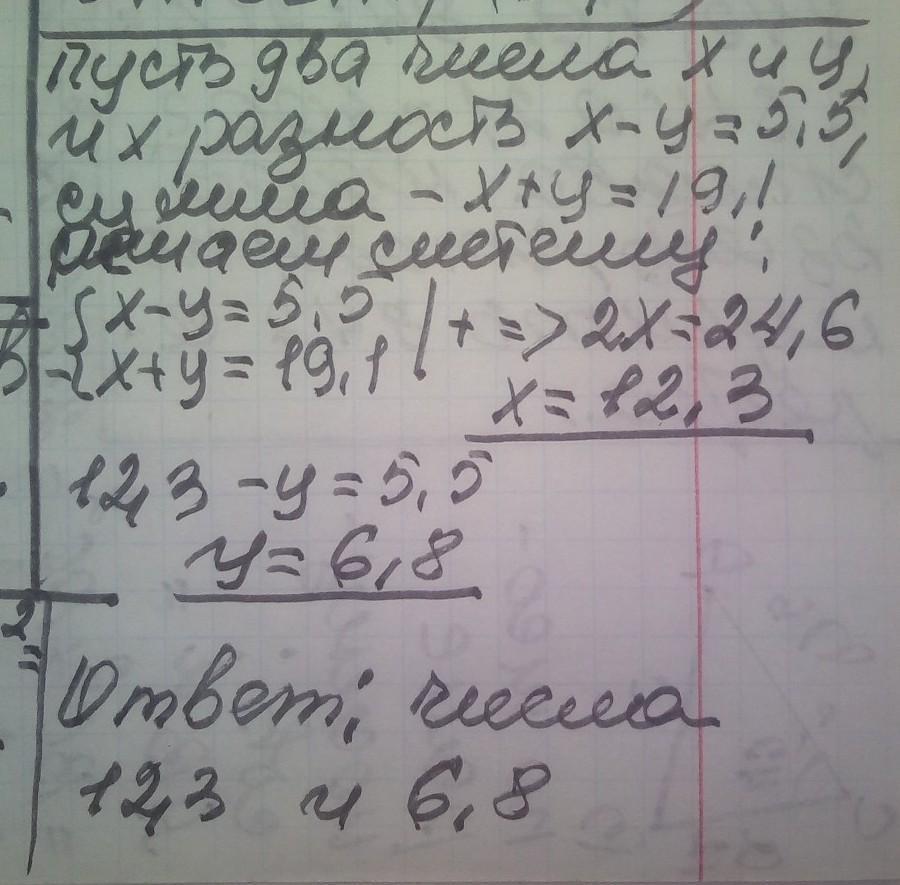 Пусть два числа х и у,
их разность х-у=5,5,
сумма - х+у=19,1
решаем систему:
{х-у=5,5 | + => 2х=24,6
{х+у=19,1
х=12,3
12,3-у=5,5
у=6,8
2
=
Ответ: числа
12,3 и 6,8